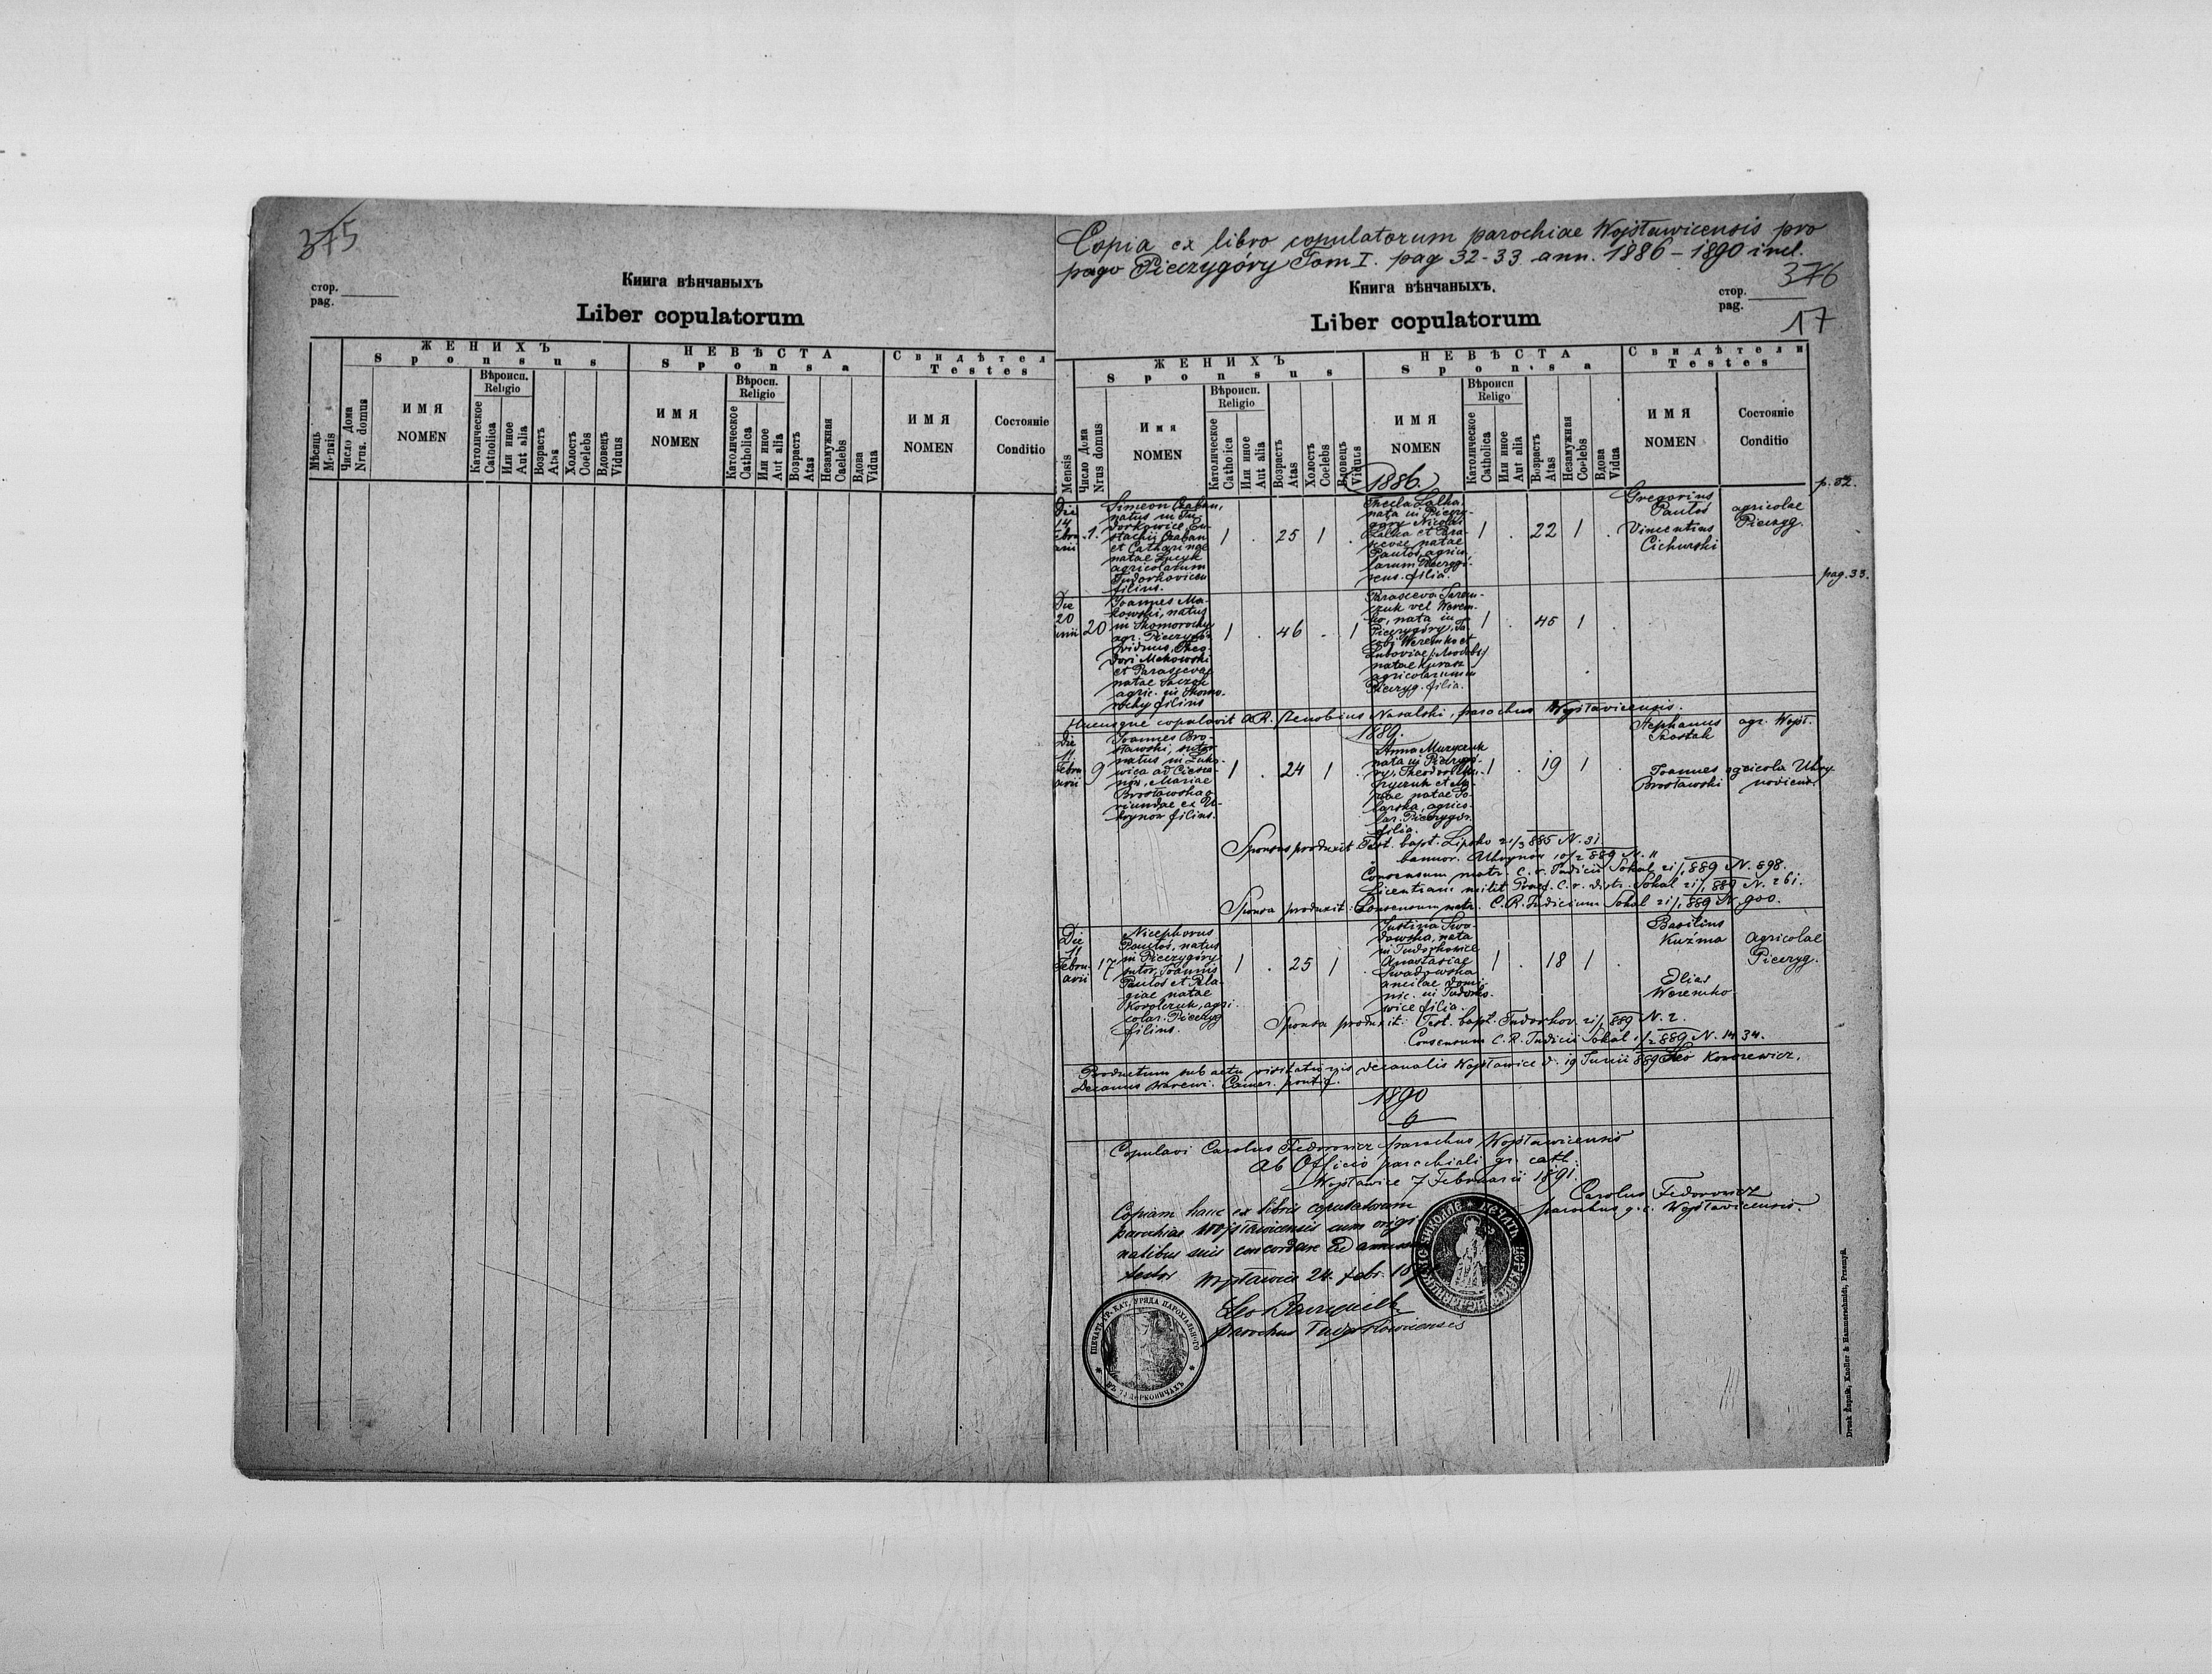 375
стор.
pag.
Книга вѣнчаныхъ
Liber copulatorum
Мѣсяць
Mensis
Число Дома
Nrus. domus
ЖЕНИХЪ
Sponsus
ИМЯ
NOMEN
Вѣроисп.
Religio
Католическое
Catholica
Или иное
Aut alia
Возрастъ
Atas
Холостъ
Coelebs
Вдовецъ
Viduus
НЕВѢСТА
Sponsa
ИМЯ
NOMEN
Вѣросп.
Religio
Католическое
Catholica
Или иное
Aut alia
Возрастъ
Atas
Незамужная
Caelebs
Вдова
Vidua
Свидѣтел
Testes
ИМЯ
NOMEN
Состояніе
Conditio
Copia ex libro copulatorum parochiae Wojsławicensis pro
pago Pieczygóry Tom I. pag 32-33 ann. 1886-1890 incl.
376
Книга вѣнчаныхъ.
стор.
pag.
Liber copulatorum
17
Mensis
Число Дома
Nrus domus
ЖЕНИХЪ
Sponsus
Имя
NOMEN
Вѣроисп.
Religio
Католическое
Cathoica
Или иное
Aut alia
Возрастъ
Atas
Холостъ
Coelebs
Вдовецъ
Viduus
НЕВѢСТА
Sponsa
ИМЯ
NOMEN
Вѣроисп
Religo
Католическое
Catholica
Или иное
Aut alia
Возрастъ
Atas
Незамужная
Coelebs
Вдова
Vidua
Свидѣтели
Testes
ИМЯ
NOMEN
Состояніе
Conditio
1886.
p. 32.
Die
14
Febru
arii
1.
Simeon Czaban,
natus in Tu-
dorkowice Eu-
stachii Czaban
et Catharinae
natae
agricolarum
Tudorkovicen
filius.
1 . 25 1 .
Thecla Łałka
nata in Pieczy-
góry Nicolai
Łałka et Para-
scevae natae
Pautoś, agrico-
larum Pieczygó-
rens. filia.
1 . 22 1 .
Gregorius
Pautoś
Vincentius
Cichurski
agricolae
Pieczyg.
pag. 33.
Die
20
unii
20
Joannes Ma-
kowski, natus
in Skomorochy
agr. Pieczygó
viduus, Theo-
dori Makowski
et Parascevae
natae
agric. in Skomo-
rochy filius
1 . 46 . 1
Parasceva
czuk vel Werem-
ko, nata in
Pieczygóry, Ja-
cobi Weremko et
natae
agricolarum in
Pieczyg. filia.
1 . 45 1 .
Hucusque copulavit A.R. Zenobius Nasalski, parochus Wojsłavicensis.
1889.
Die
11
Febru
arii
9
Joannes Bro-
sławski, sutor
natus in Łuko-
wica ad Ciesza-
nów, Mariae
Brosławska o-
riundae ex U-
hrynów filius.
1 . 24 1 .
Anna Muzyczuk
nata in Pieczygó-
ry, Theodori Mu-
zyczuk et Ma-
riae natae
agrico-
lar. Pieczygór.
filia.
1 . 19 1
Stephanus
Szostak
agr. Wojsł.
Joannes
Brosławski
agricola Uhry
noviens.
Sponsus produxit Test. bapt. Lipsko 21/3 885 N. 31
bannor. Uhrynów 10/2 889 N. 11
Consensum matr. C. r. Judicii Sokal 21/1 889 N. 898.
Licentiam milit Praef. C. r. distr. Sokal 21/1 889 N. 261.
Sponsa produxit: Consensum matr. C. R. Judicium Sokal 21/1 889 N. 900.
Die
11
Febru-
arii
17
Nicephorus
Pautoś, natus
in Pieczygóry
sutor, Joannis
Pautoś et Pela-
giae natae
Kowalczuk, agri-
colar. Pieczyg
filius.
1 . 25 1 .
Justina Swa-
dowska, nata
in Tudorkowice
Anastasiae
Swadowska
ancilae domi-
nic. in Tudorko-
wice filia.
1 . 18 1 .
Basilius
Kuźma
Elias
Weremko
Agricolae
Pieczyg.
Sponsa produxit: Test. bapt. Tudorkov. 21/1 889 N. 2.
Consensum C. R. Judicii Sokal 1/2 889 N. 1434.
Productum sub actu visitationis decanalis Wojsławice d. 19 Junii 889 Leo Kororewicz.
Decanus Varenz. Camer. pontif.
1890
0
Copulavi Carolus Fedorowicz parochus Wojsławicensis
Ab Officio parochiali gr. cath.
Wojsławice 7 Februarii 1891.
Carolus Fedorowicz
parochus g. c. Wojsłavicensis.
Copiam hanc ex libris copulatorum
parochiae Wojsławicensis cum origi-
nalibus suis concordare
testor Wojsławice 24. febr. 18
Leo
parochus Tudorkovicensis
ПЕЧАТЬ ГР. КАТ. УРЯДА ПАРОХІАЛЬНОГО
ВЪ ТУДОРКОВИЧАХЪ
Druk Żupnik, Knoller & Hammerschmidt, Przemyśl.